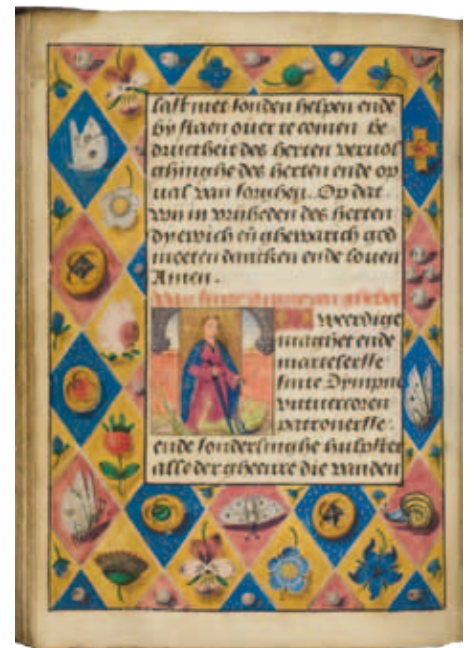 last niet konden helpen ende
by staen ouer te comen be
dructheit des herten veruol
chinghe des herten ende op
ual van sorghen. Op dat
wij in vrijheden des herten
dyewich eñ ghewarich god
moeten dancken ende louen
Amen.
Van sinte
weerdige
maghet ende
martelersse
sinte Dympna
vutuercoren
patronersse
ende sonderlinghe hulpster
alle der gheenre die vanden